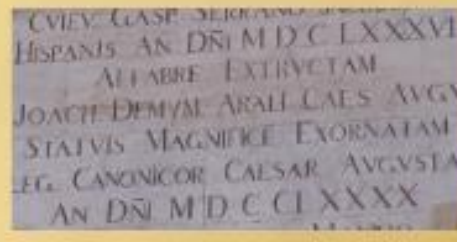 CVIEV GASP SERRANO
HISPANIS AN DÑI M D C LXXXVI
AFFABRE EXTRVCTAM
JOACH DEMVM ARALI CAES AVGV
STATVIS MAGNIFICE EXORNATAM
LEG. CANONICOR CAESAR AVGVSTA
AN DÑI M D C CL XXXX